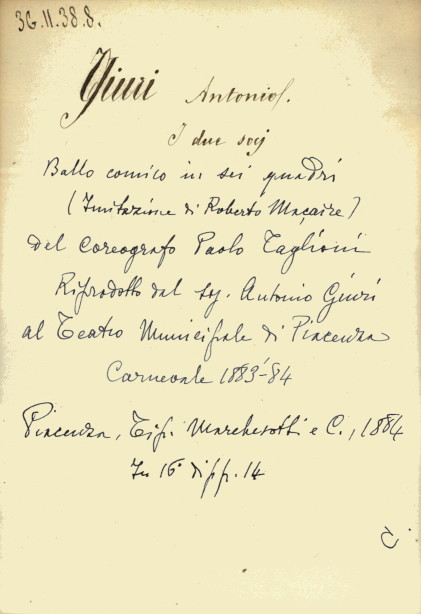 36.11.38.8.
Giuri Antonio.
I due socj
Ballo comico in sei quadri
(Imitazione di Roberto Macaire)
del Coreografo Paolo Taglioni
Riprodotto dal Sig. Antonio Giuri
al Teatro Municipale di Piacenza
Carnevale 1883-84
Piacenza, Tip. Marchesotti e C., 1884
In 16° di pp. 14